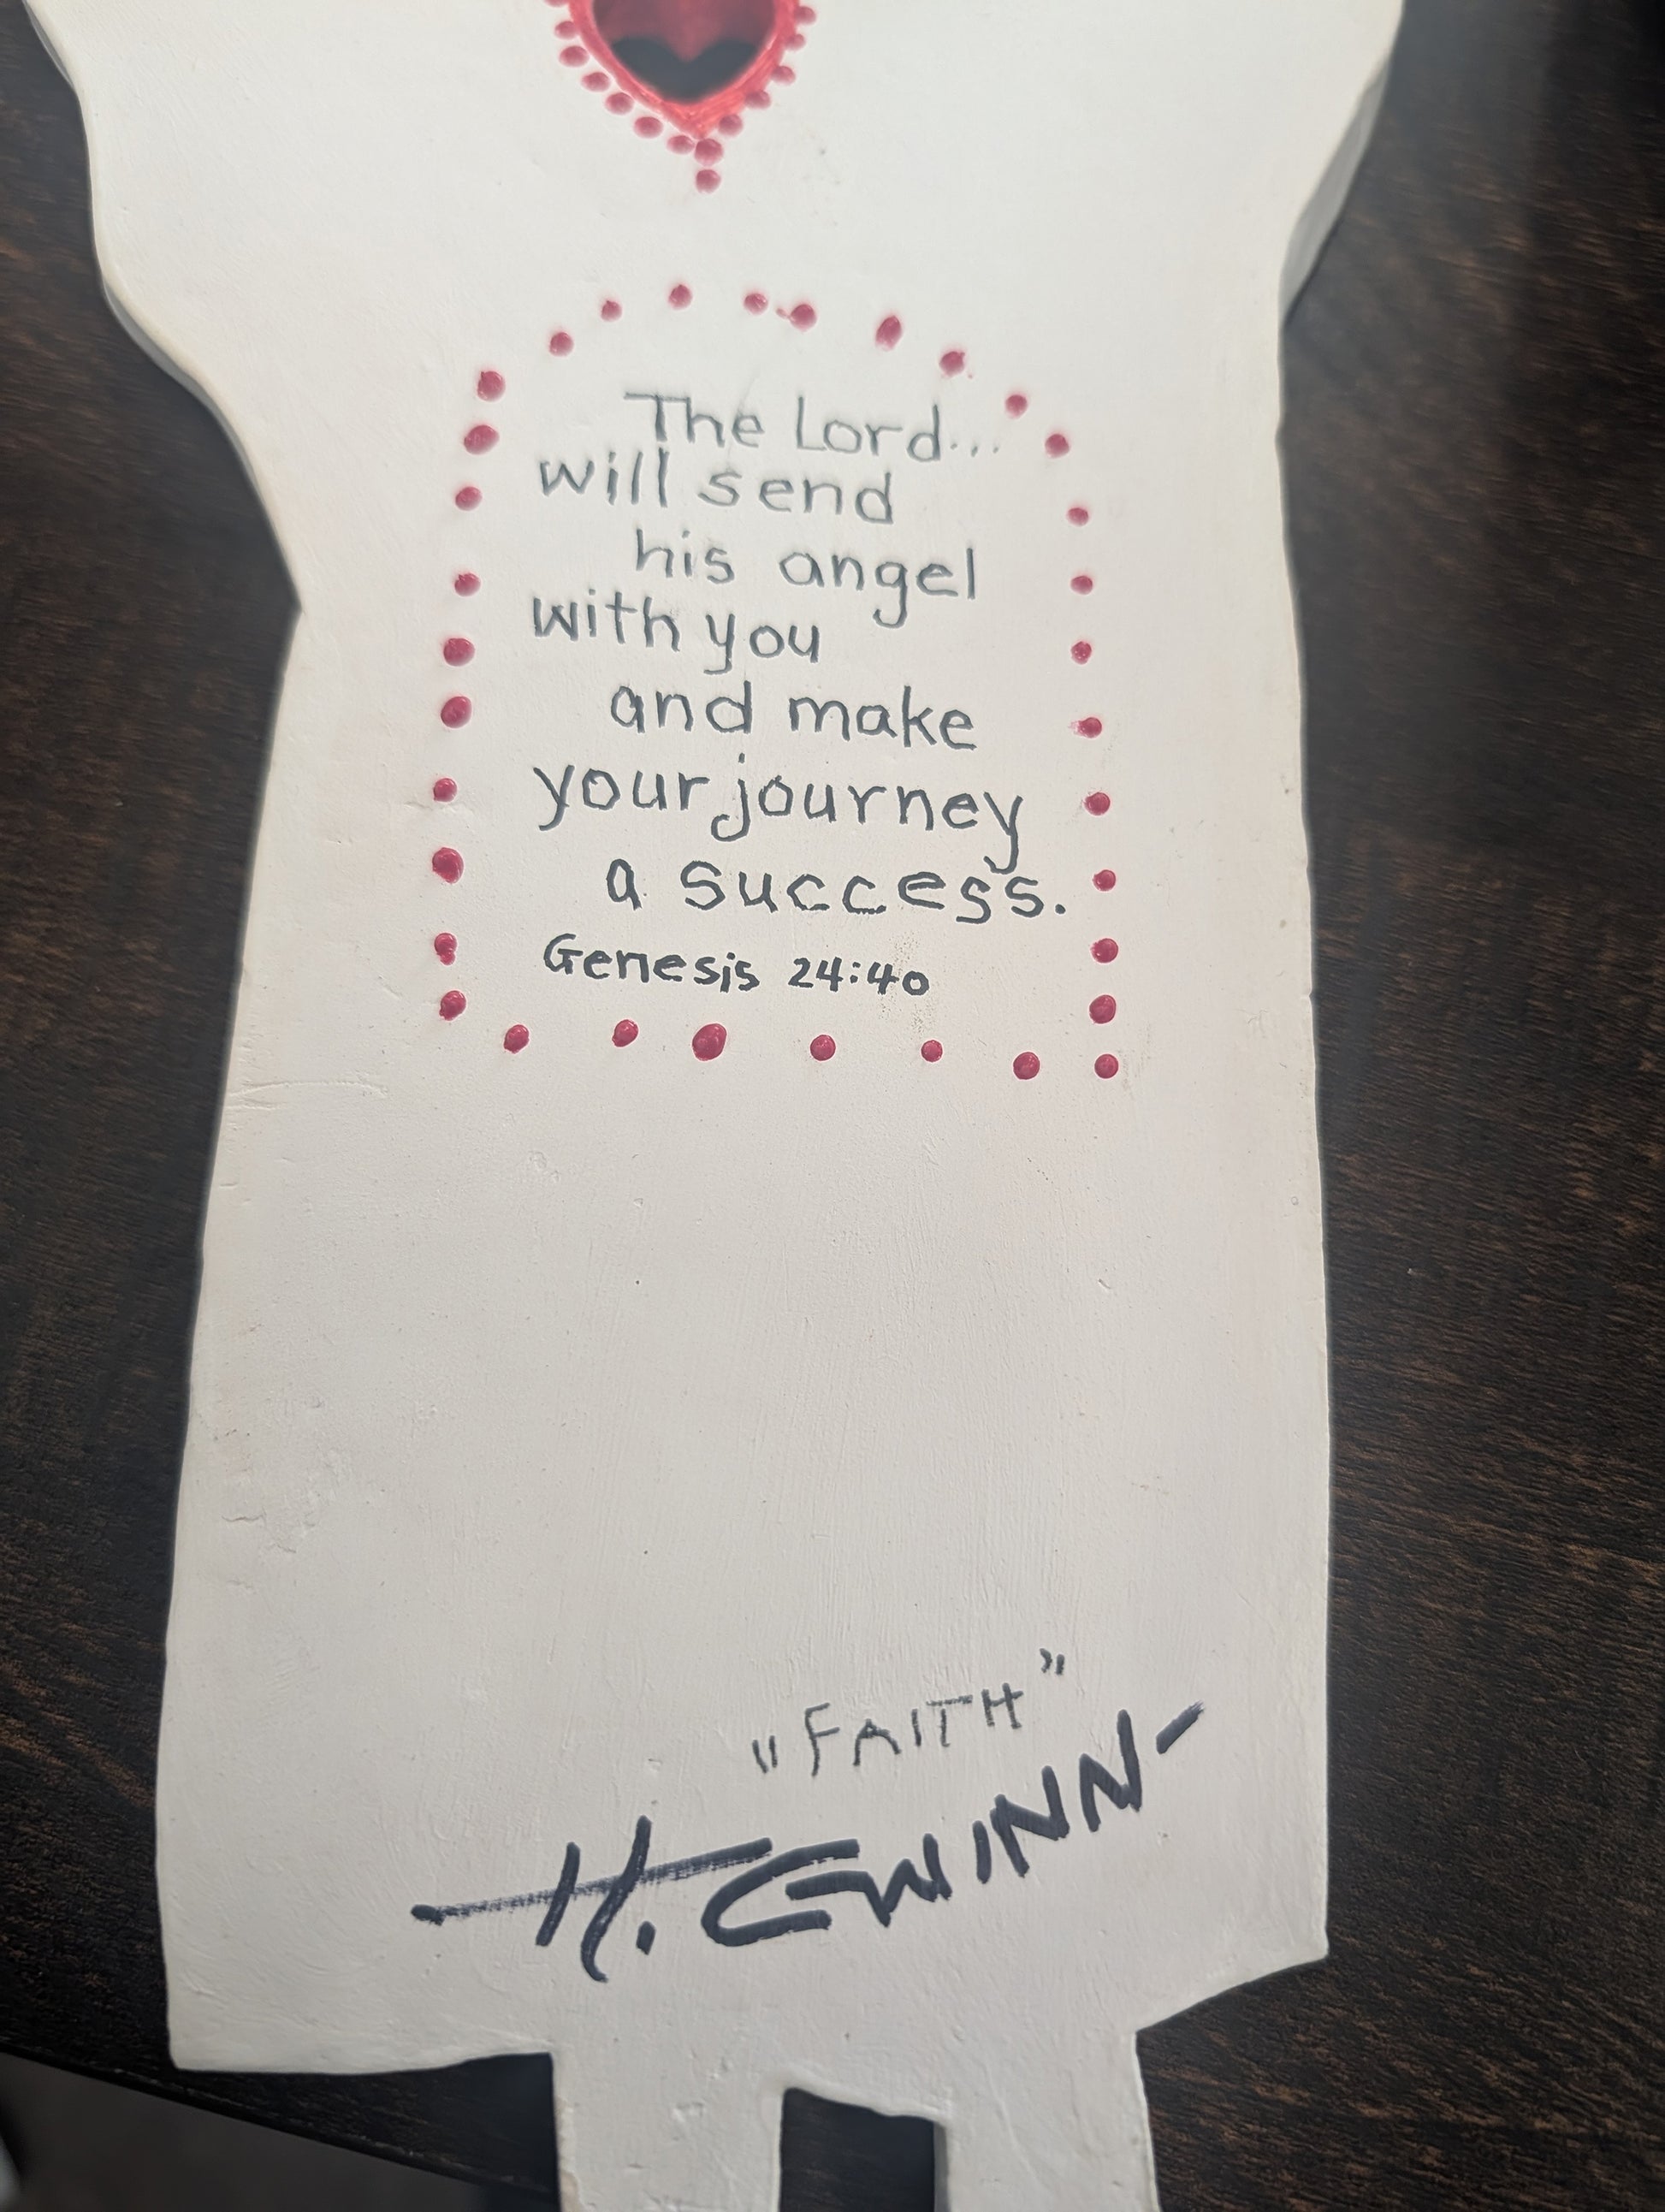 The Lord...
will send
his angel
with you
and make
your journey
a success.
Genesis 24:40
"FAITH"
H. GWINN